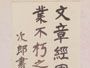 文章經
業不朽之
次郎書